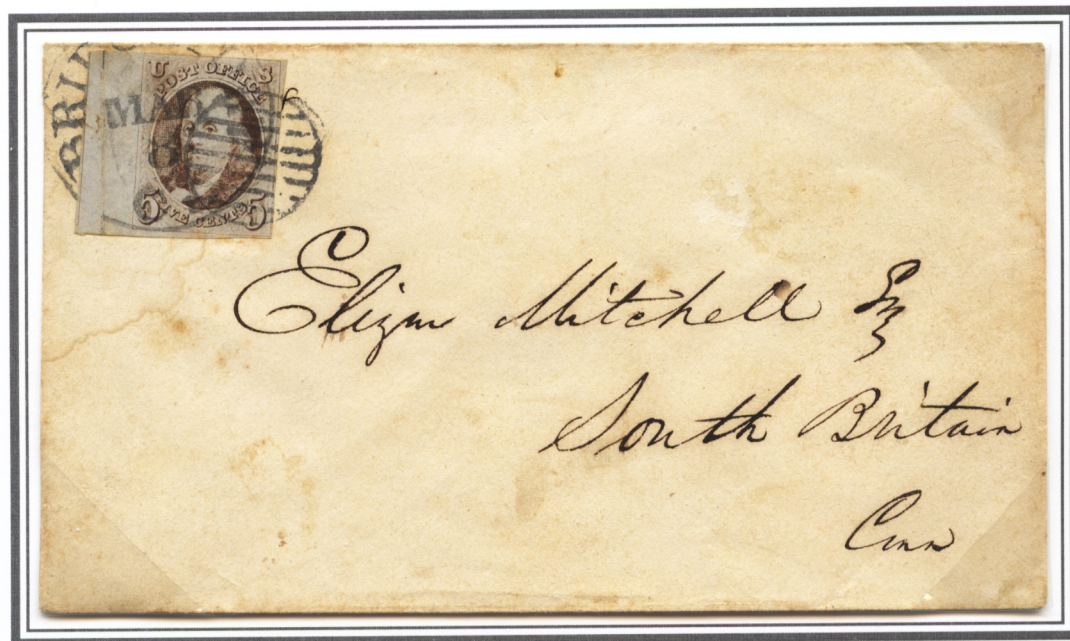 BRIDG
MAY
8
U S
POST OFFICE
5 FIVE CENTS 5
Elizur Mitchell Esq
South Britain
Conn